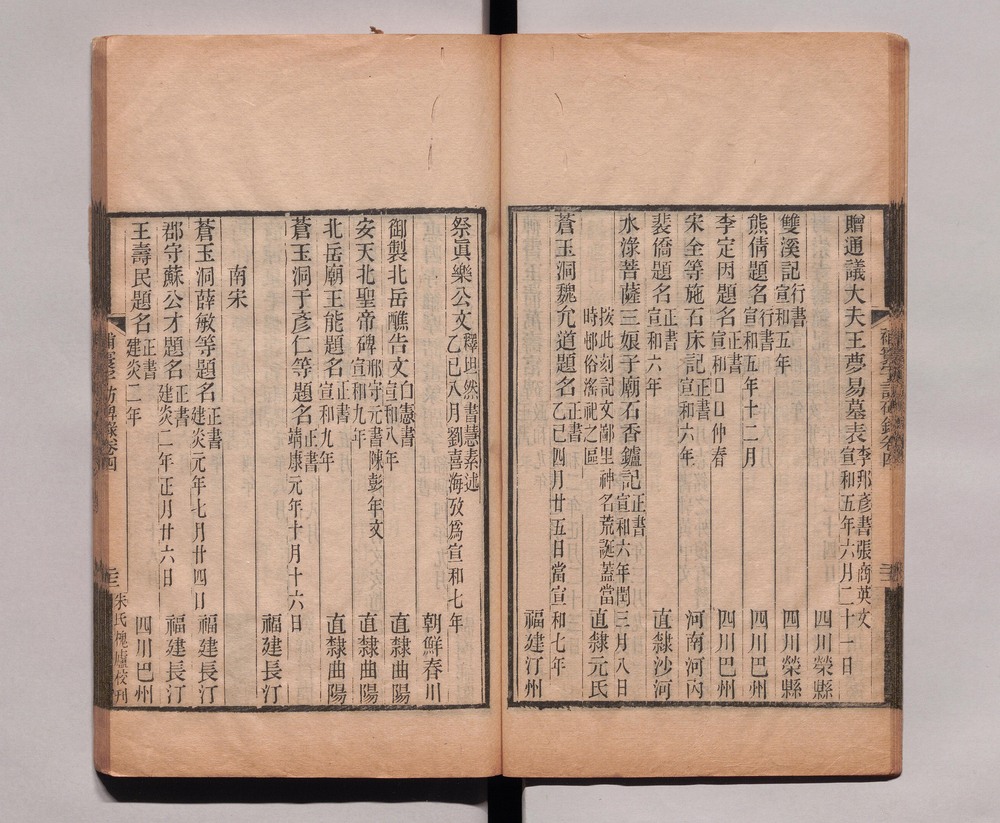 贈通議大夫王夢易墓表李邦彥書張商英文宣和五年六月二十一日
四川榮縣
雙溪記行書宣和五年 四川榮縣
熊倩題名行書宣和五年十二月 四川巴州
李定因題名正書宣和口口仲春 四川巴州
宋全等施石床記正書宣和六年 河南河內
裴僑題名正書宣和六年 直隸沙河
水淥菩薩三娘子廟石香鑪記正書宣和六年閏三月八日
按此刻記文鄙里神名荒誕蓋當時邨俗滛祀之區 直隸元氏
蒼玉洞魏允道題名正書乙巳四月廿五日當宣和七年
福建汀州
補寰宇訪碑錄卷四
祭眞樂公文釋坦然書慧素述乙巳八月劉喜海攷爲宣和七年
朝鮮春川
御製北岳醮告文白憲書宣和八年 直隸曲陽
安天北聖帝碑邢守元書陳彭年文宣和九年 直隸曲陽
北岳廟王能題名正書宣和九年 直隸曲陽
蒼玉洞于彥仁等題名正書靖康元年十月十六日
福建長汀
南宋
蒼玉洞薛敏等題名正書建炎元年七月廿四日 福建長汀
郡守蘇公才題名正書建炎二年正月廿六日 福建長汀
王壽民題名正書建炎二年 四川巴州
補寰宇訪碑錄卷四 三 朱氏槐廬校刊